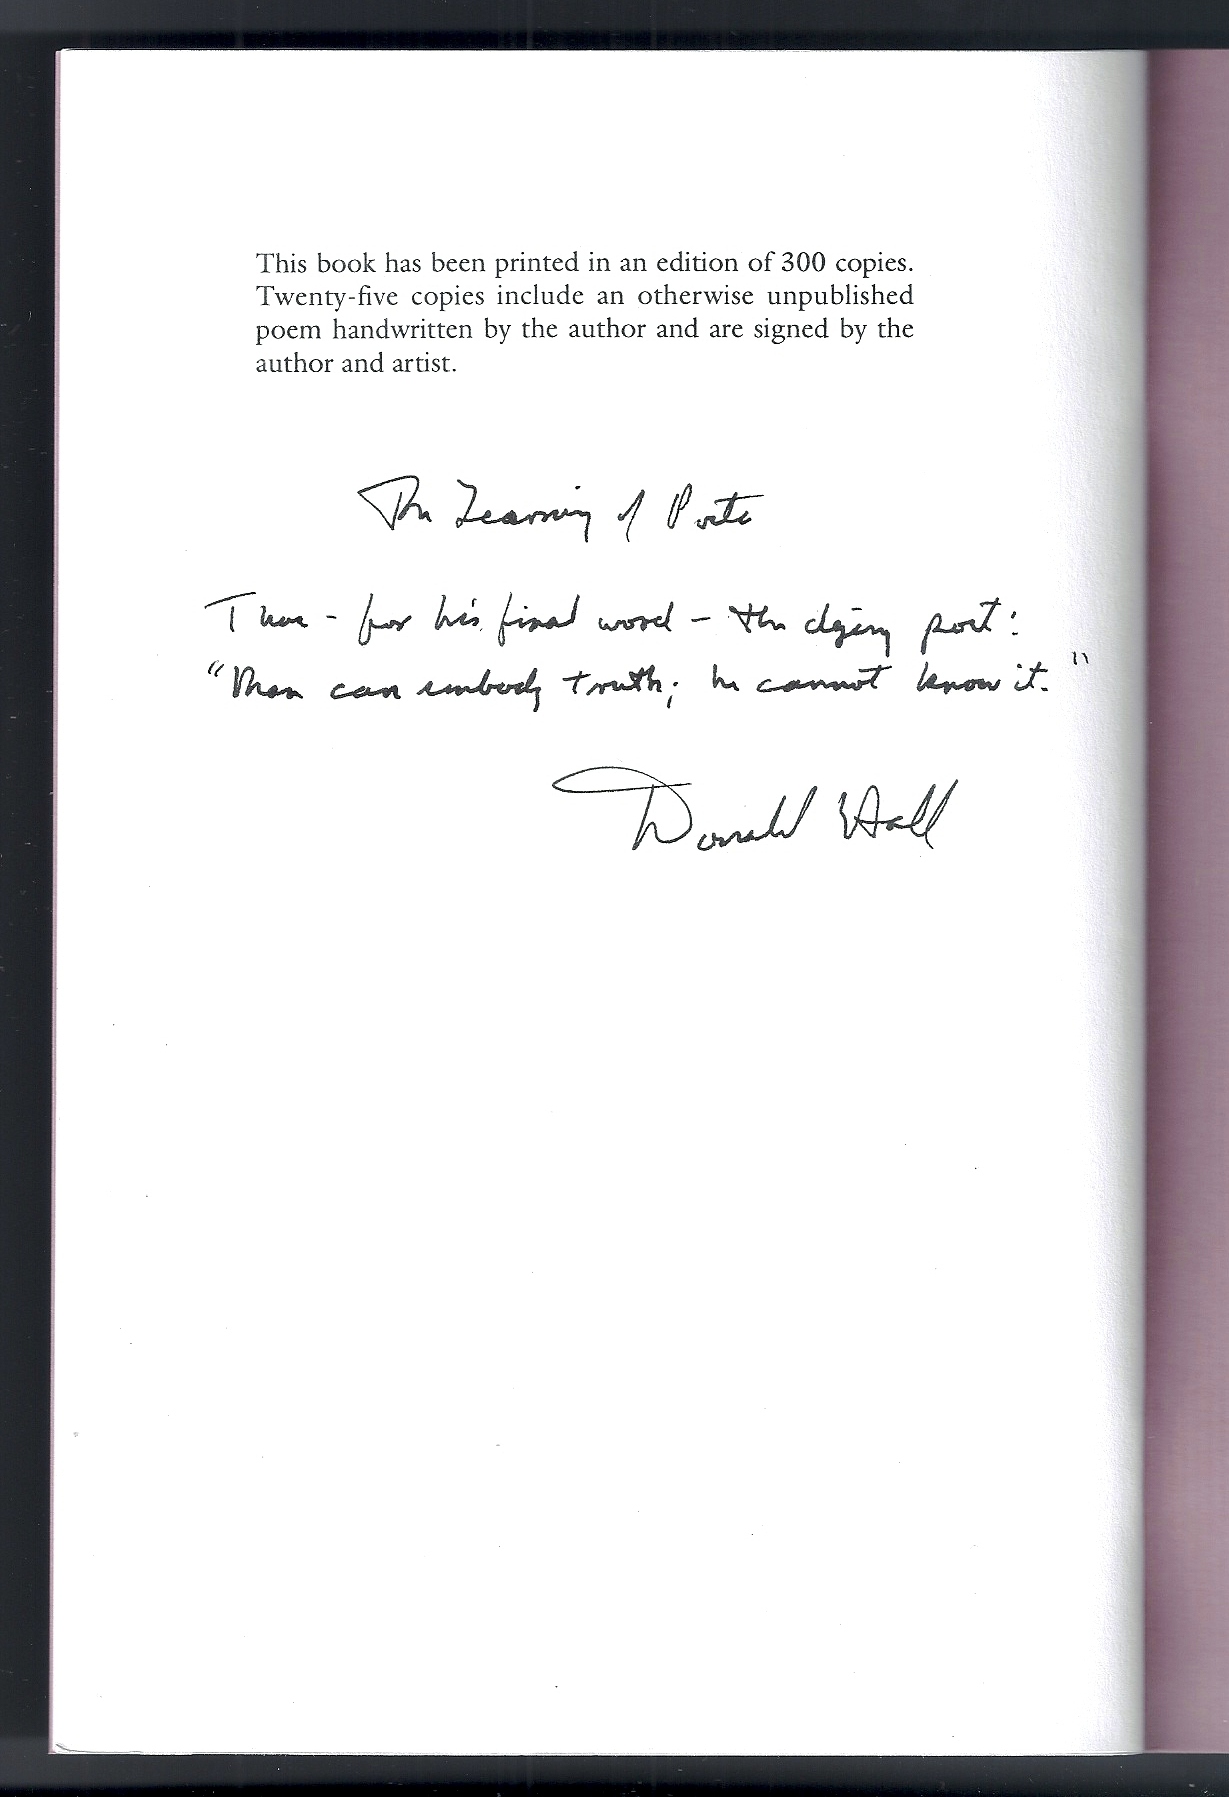 This book has been printed in an edition of 300 copies.
Twenty-five copies include an otherwise unpublished
poem handwritten by the author and are signed by the
author and artist.
The Learning of Poets
- for his final word - the dying poet:
"Man can embody truth; he cannot know it."
Donald Hall